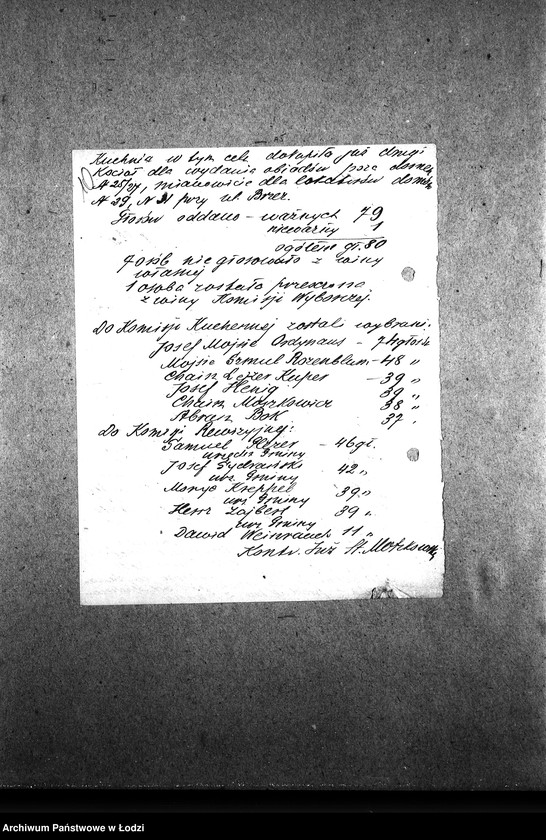 Kuchnia w tym celu dokupiła już drugi
kocioł dla wydania obiadów poza domem
N 25/27, mianowicie dla lokatorów domów
N 29, N 31 przy ul. Brzez.
Głosów oddano – ważnych 79
nieważny 1
ogółem gł. 80
4 osób nie głosowało z winy
własnej
1 osoba została
z winy Komisji Wyborczej.
Do Komisji Kuchennej zostali wybrani:
Josef Mojsie Ordynans – głosów
Mojsie Szmul Rozenblum – 48 "
Chaim Lejzer Kuper – 39 "
Josef Henig 39 "
Chaim Moszkowicz 38 "
Abram Bok 37 "
Do Komisji Rewizyjnej:
Samuel – 46 gł.
urzędn. Gminy
Josef 42 "
urz. Gminy
Moryc Kreppel 39 "
urz. Gminy
Hersz Zajbert 39 "
urz. Gminy
Dawid Weinrauch 11 "
Kontr. Inż
Archiwum Państwowe w Łodzi